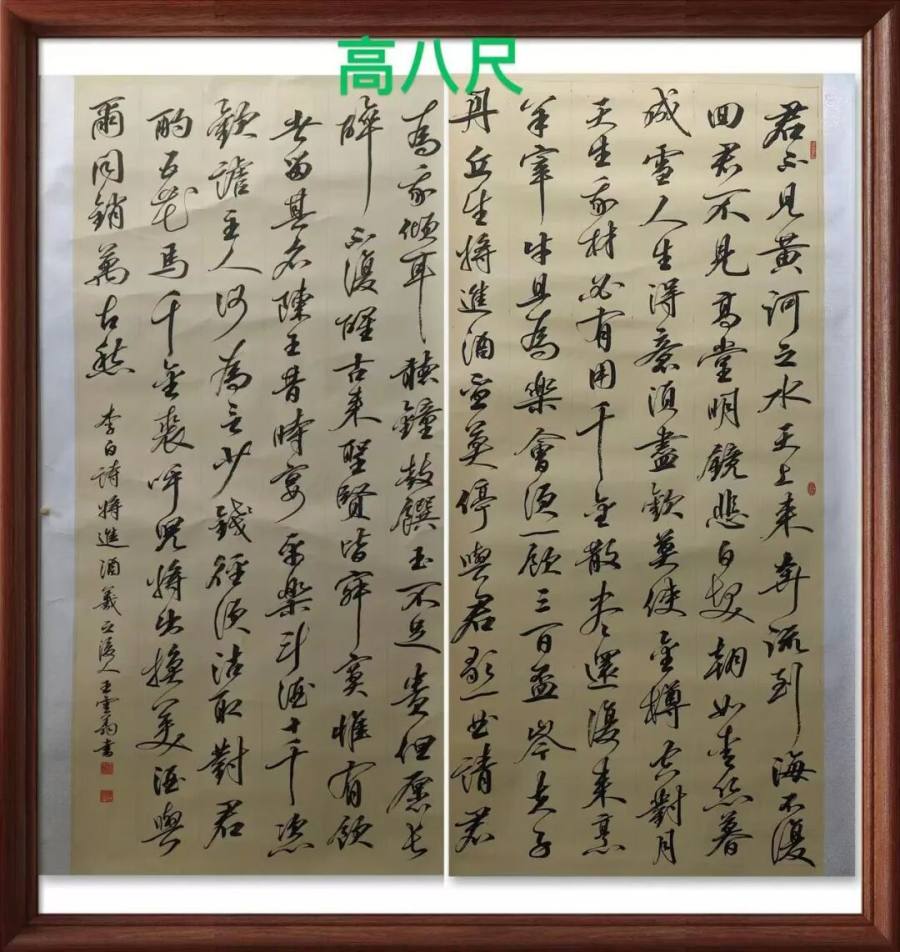 高八尺
君不見黃河之水天上来奔流到海不復
回君不見高堂明鏡悲白髮朝如青絲暮
成雪人生得意須盡歡莫使金樽空對月
天生我材必有用千金散盡還復来烹
羊宰牛且為樂會須一飲三百盃岑夫子
丹丘生將進酒盃莫停與君歌一曲請君
為我傾耳聽鐘鼓饌玉不足貴但願長
醉不復醒古来聖賢皆寂寞惟有飲
者留其名陳王昔時宴平樂斗酒十千恣
歡謔主人何為言少錢徑須沽取對君
酌五花馬千金裘呼兒將出換美酒與
爾同銷萬古愁
李白詩將進酒羲之後人王雲書